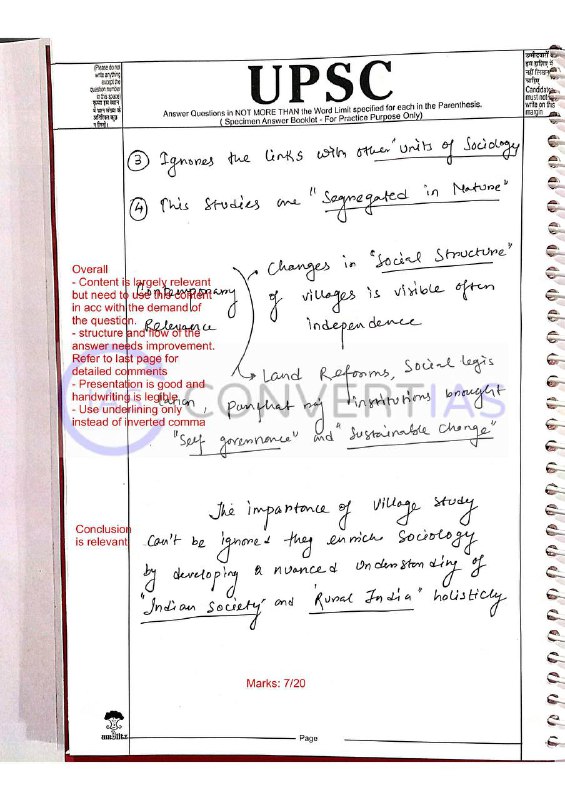 (Please do not
write anything
except the
question number
in this space)
कृपया इस स्थान
में प्रश्न संख्या के
अतिरिक्त कुछ
न लिखें।
UPSC
Answer Questions in NOT MORE THAN the Word Limit specified for each in the Parenthesis.
( Specimen Answer Booklet - For Practice Purpose Only)
उम्मीदवारों को
इस हाशिए में
नहीं लिखना
चाहिए
Candidates
must not
write on this
margin
③ Ignores the links with other "units of Sociology
④ This studies are "Segregated in Nature"
Contemporary
Relevance
Changes in "Social Structure"
of villages is visible often
independence
Land Reforms, Social legis
lation, Panchayat raj institutions brought
"Self governance" and "Sustainable Change"
The importance of Village study
can't be ignored they enrich Sociology
by developing a nuanced understanding of
"Indian Society" and "Rural India" holisticly
Overall
- Content is largely relevant
but need to use this content
in acc with the demand of
the question.
- structure and flow of the
answer needs improvement.
Refer to last page for
detailed comments
- Presentation is good and
handwriting is legible
- Use underlining only
instead of inverted comma
CONVERTIAS
Conclusion
is relevant
Marks: 7/20
Page